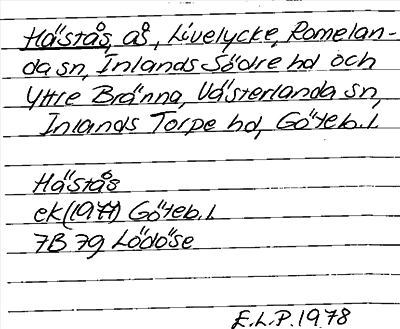 Hästås, ås, Livelycke, Romelan-
da sn, Inlands Södre hd och
Yttre Bränna, Västerlanda sn,
Inlands Torpe hd, Göteb. l
Hästås
ek (1977) Göteb. l
7B 7g Lödöse
E.L.P. 1978